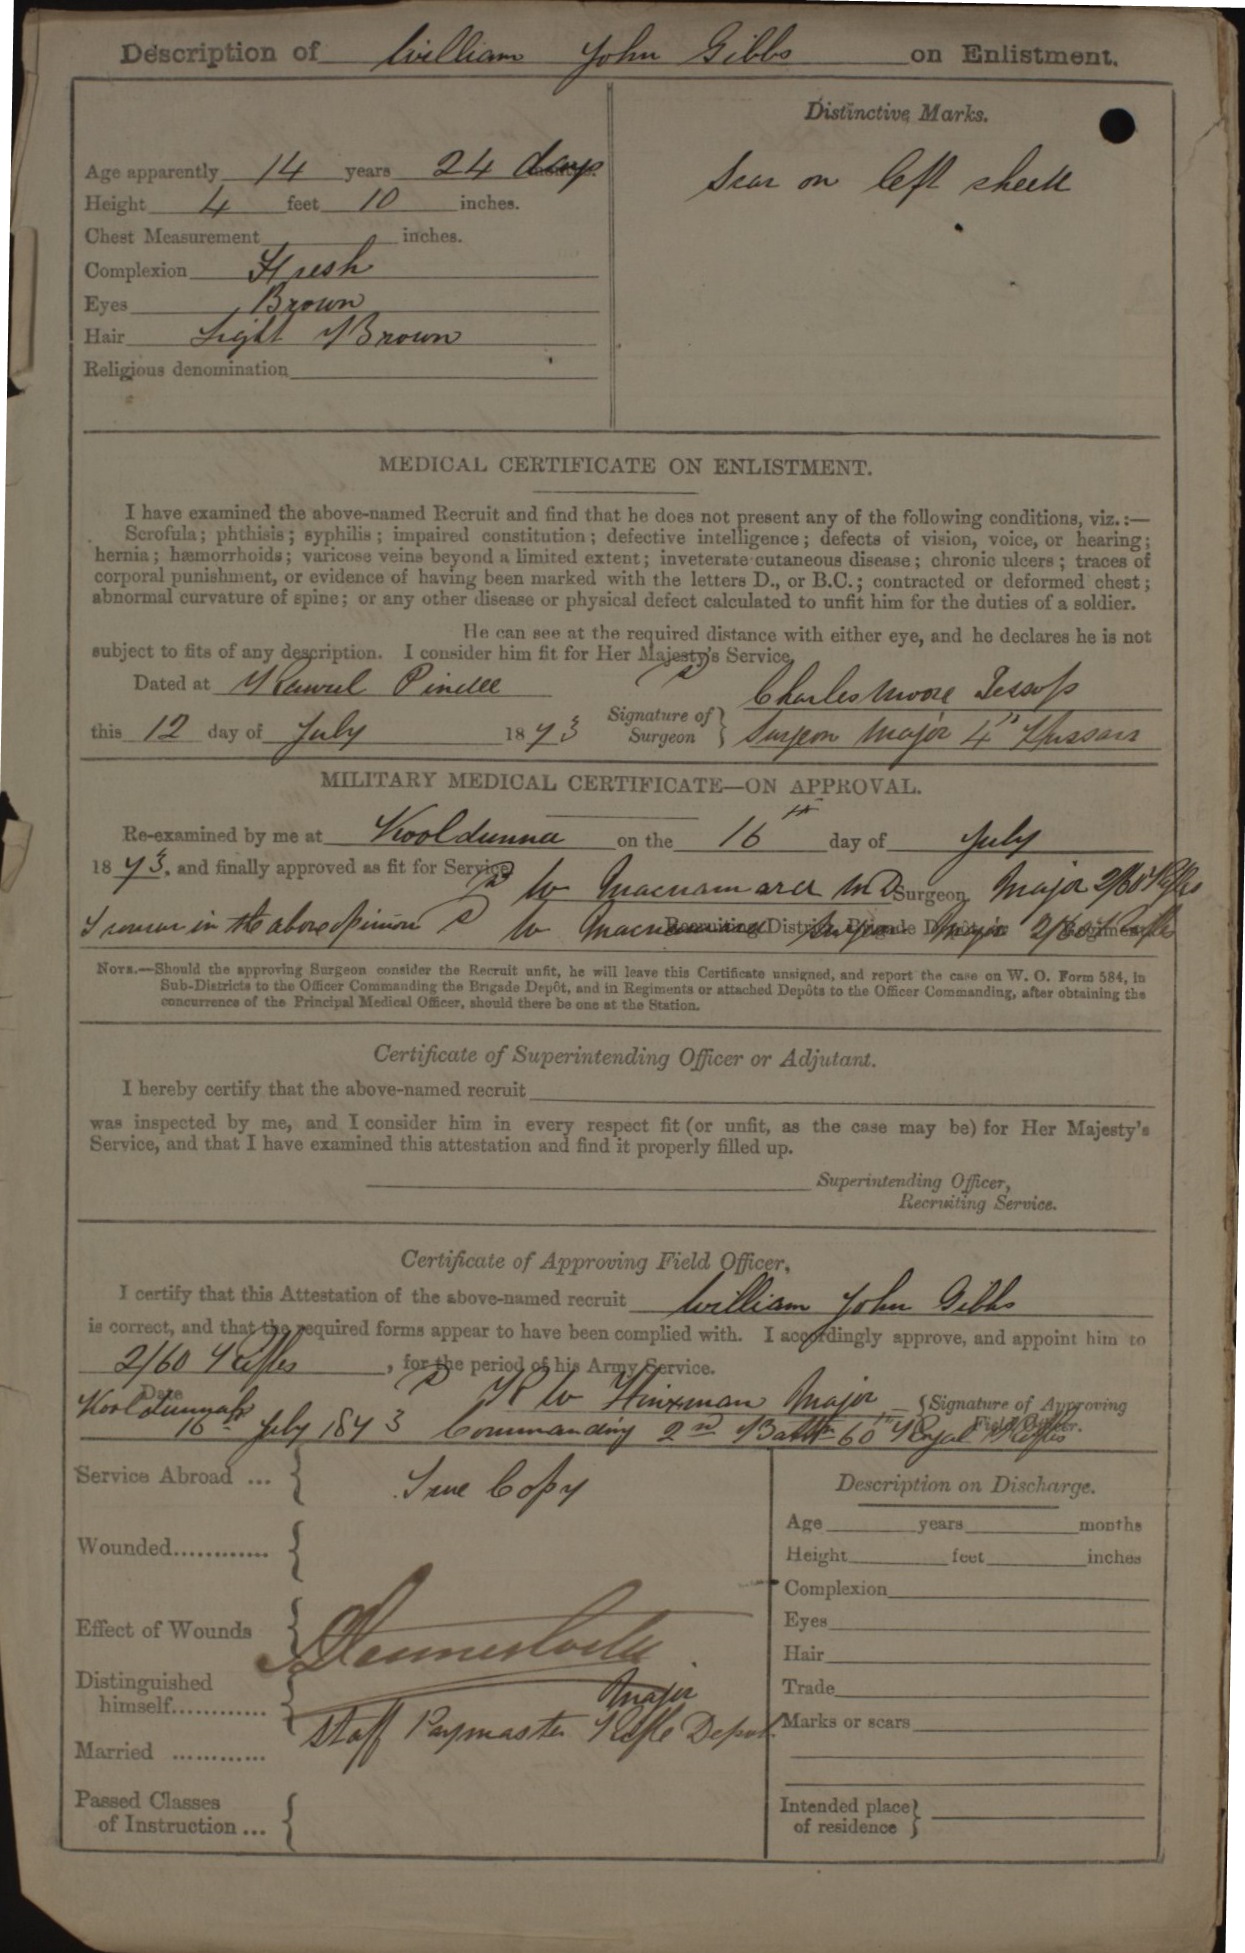 Description of William John Gibbs on Enlistment.
Distinctive Marks.
Scar on left cheek
Age apparently 14 years 24 days
Height 4 feet 10 inches.
Chest Measurement inches.
Complexion Fresh
Eyes Brown
Hair Light Brown
Religious denomination
MEDICAL CERTIFICATE ON ENLISTMENT.
I have examined the above-named Recruit and find that he does not present any of the following conditions, viz.:—
Scrofula; phthisis; syphilis; impaired constitution; defective intelligence; defects of vision, voice, or hearing;
hernia; hæmorrhoids; varicose veins beyond a limited extent; inveterate cutaneous disease; chronic ulcers; traces of
corporal punishment, or evidence of having been marked with the letters D., or B.C.; contracted or deformed chest;
abnormal curvature of spine; or any other disease or physical defect calculated to unfit him for the duties of a soldier.
He can see at the required distance with either eye, and he declares he is not
subject to fits of any description. I consider him fit for Her Majesty's Service.
Dated at Rawul Pindee
Charles Moore Jessop
this 12 day of July 1873 Signature of Surgeon Surgeon Major 4th Hussars
MILITARY MEDICAL CERTIFICATE—ON APPROVAL.
Re-examined by me at Kooldunna on the 16th day of July
1873, and finally approved as fit for Service,
W Macnamara MD Surgeon Major 2/60 Rifles
I concur in the above opinion W Macnamara Surgeon Major 2/60 Rifles
Recruiting District, Brigade Depôt, or Regiment.
NOTE.—Should the approving Surgeon consider the Recruit unfit, he will leave this Certificate unsigned, and report the case on W. O. Form 584, in
Sub-Districts to the Officer Commanding the Brigade Depôt, and in Regiments or attached Depôts to the Officer Commanding, after obtaining the
concurrence of the Principal Medical Officer, should there be one at the Station.
Certificate of Superintending Officer or Adjutant.
I hereby certify that the above-named recruit
was inspected by me, and I consider him in every respect fit (or unfit, as the case may be) for Her Majesty's
Service, and that I have examined this attestation and find it properly filled up.
Superintending Officer,
Recruiting Service.
Certificate of Approving Field Officer.
I certify that this Attestation of the above-named recruit William John Gibbs
is correct, and that the required forms appear to have been complied with. I accordingly approve, and appoint him to
2/60 Rifles, for the period of his Army Service.
Date
Kooldunnah R W Hinxman Major Signature of Approving
Field Officer.
16th July 1873 Commanding 2nd Battn 60th Royal Rifles
Service Abroad ...
True Copy
Wounded............
Effect of Wounds
Distinguished
himself............
Major
Staff Paymaster Rifle Depot.
Married ............
Passed Classes
of Instruction ...
Description on Discharge.
Age years months
Height feet inches
Complexion
Eyes
Hair
Trade
Marks or scars
Intended place
of residence